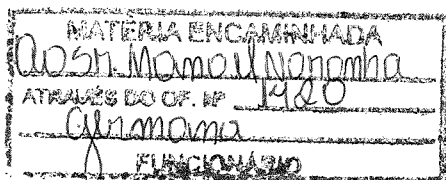 MATÉRIA ENCAMINHADA
ao Sr. Manoel Noronha
ATRAVÉS DO OF. Nº 1420
Germana
FUNCIONÁRIO